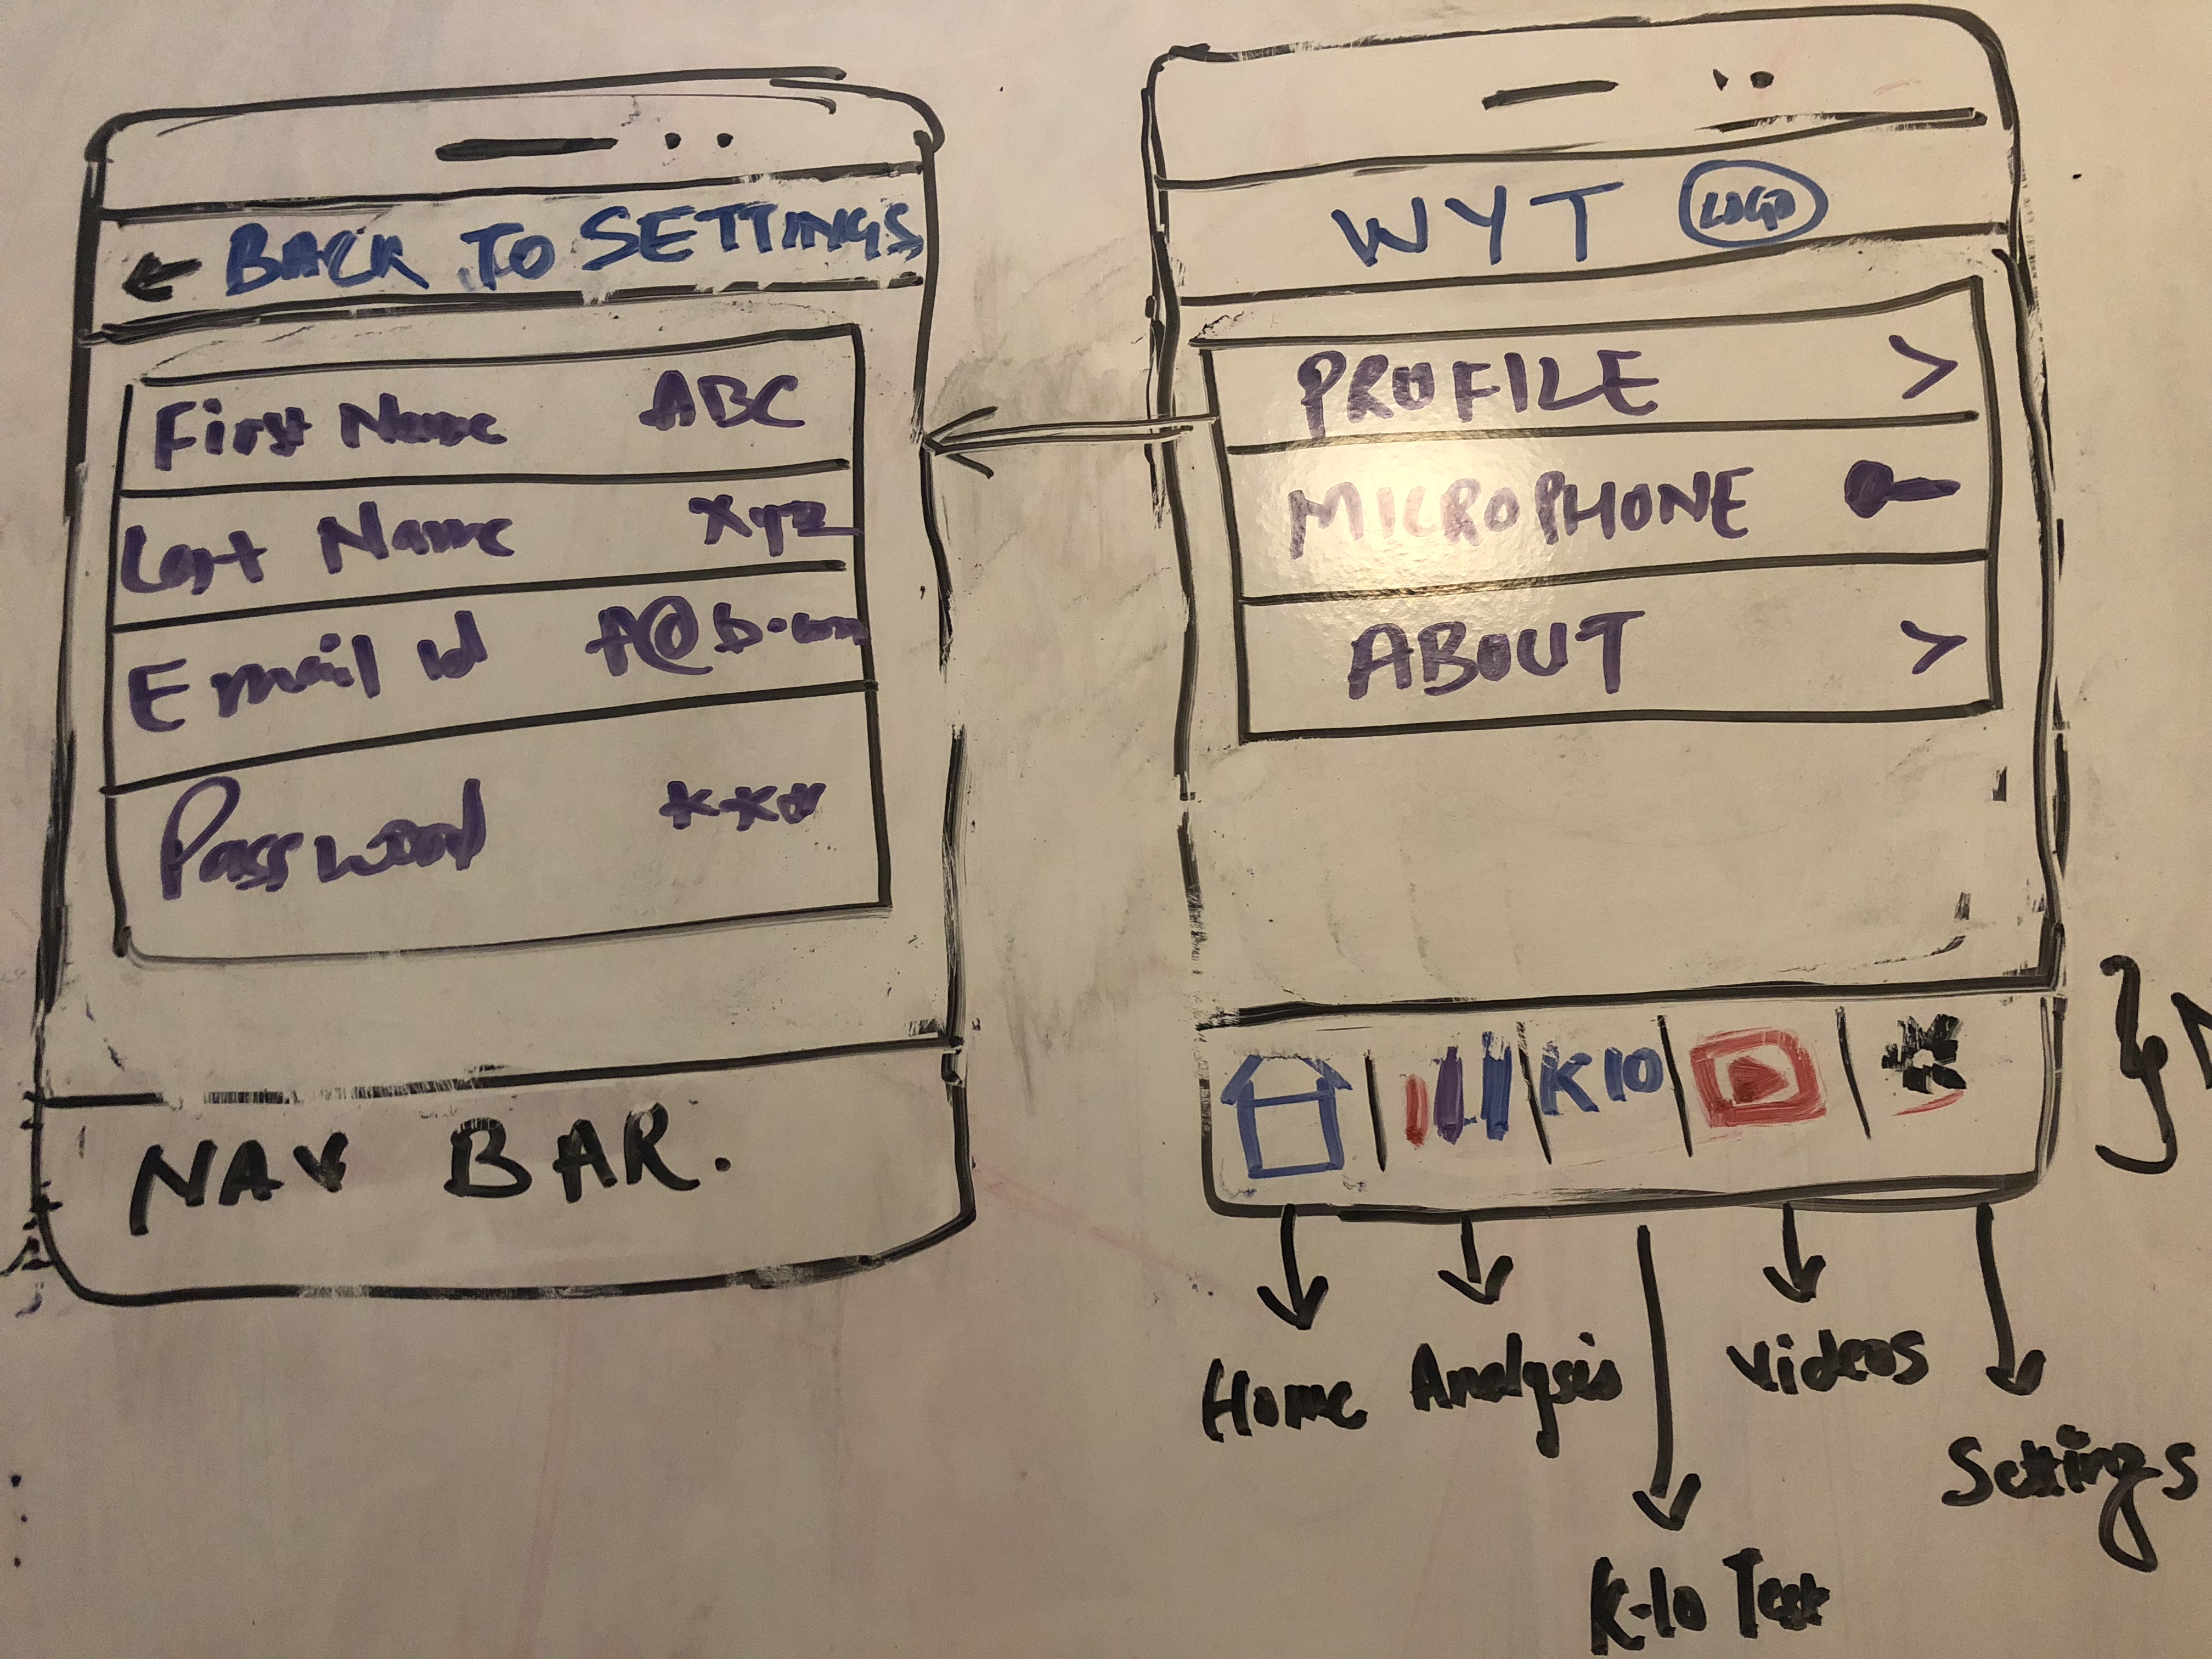 ← BACK TO SETTINGS
First Name ABC
Last Name XYZ
Email id A@b.com
Password ***
NAV BAR.
WYT LOGO
PROFILE >
MICROPHONE
ABOUT >
K10
Home
Analysis
Videos
Settings
K-10 Test